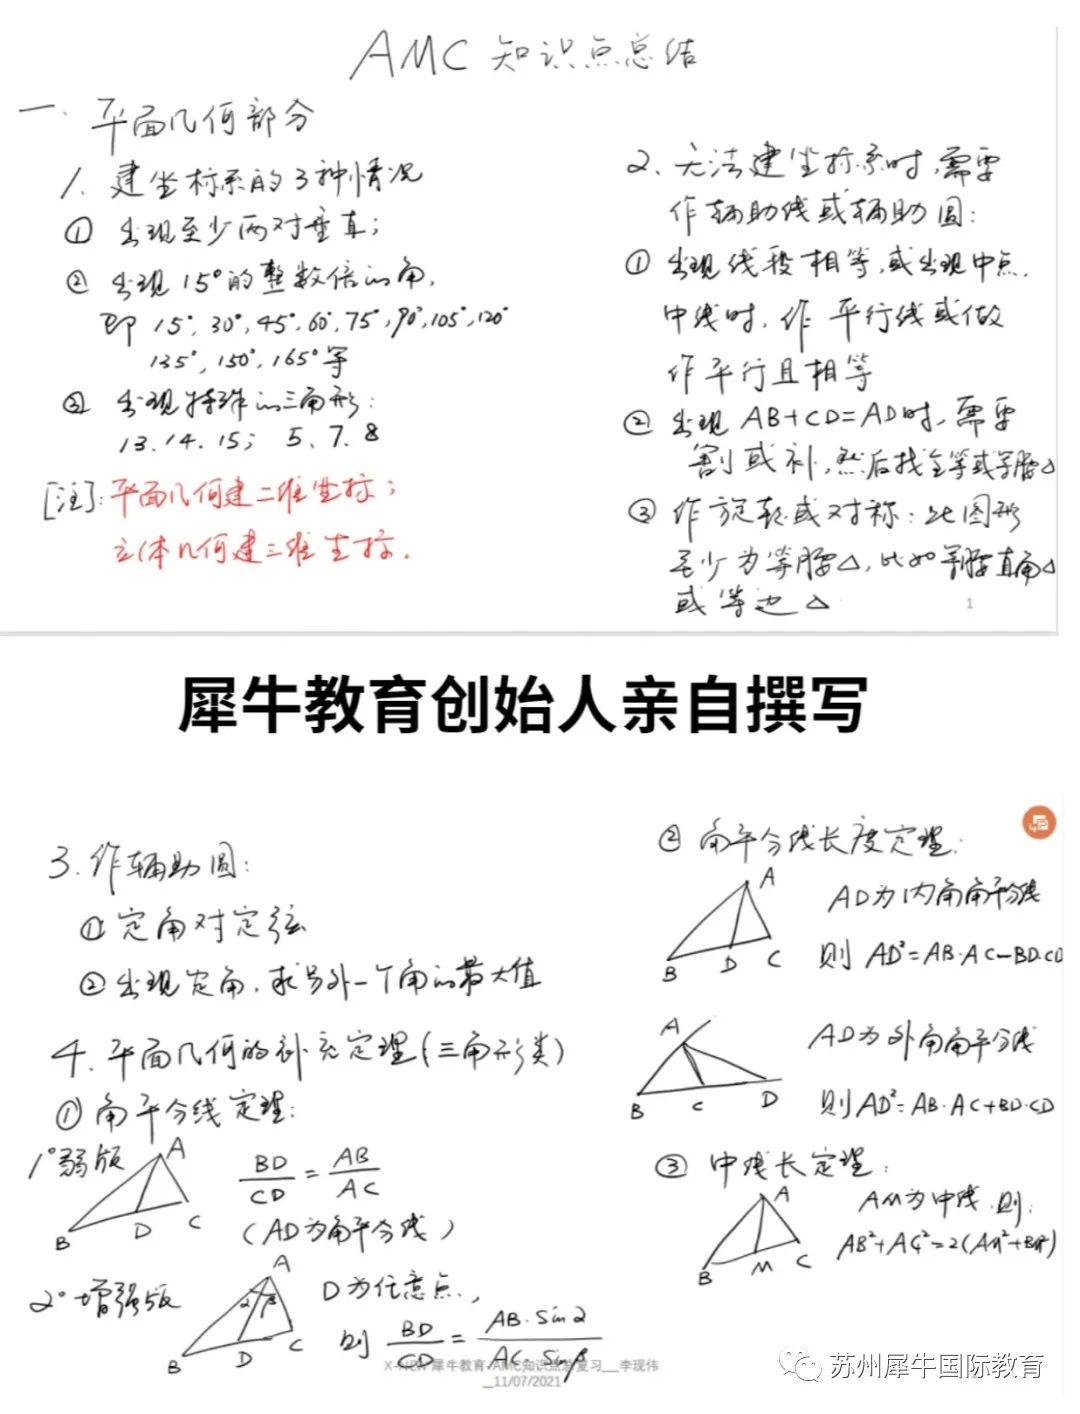 AMC 知识点总结
一. 平面几何部分
1. 建坐标系的3种情况
① 出现至少两对垂直;
② 出现15°的整数倍的角,
即 15°, 30°, 45°, 60°, 75°, 90°, 105°, 120°
135°, 150°, 165°等
③ 出现特殊的三角形:
13. 14. 15; 5、7、8
[注]: 平面几何建二维坐标;
立体几何建三维坐标.
2、无法建坐标系时,需要
作辅助线或辅助圆:
① 出现线段相等,或出现中点.
中线时, 作 平行线或做
作平行且相等
② 出现 AB+CD=AD时,需要
割或补,然后找全等或等腰△
③ 作旋转或对称: 此图形
至少为等腰△, 比如等腰直角△
或等边△
1
犀牛教育创始人亲自撰写
3. 作辅助圆:
① 定角对定弦
② 出现定角, 求另外一个角的最大值
4. 平面几何的补充定理(三角形类)
① 角平分线定理:
1° 弱版
A
B D C
BD/CD = AB/AC
(AD为角平分线)
2° 增强版
A
α β
B D C
D为任意点,
则 BD/CD = AB·Sinα/AC·Sinβ
② 角平分线长度定理:
A
B D C
AD为内角角平分线
则 AD²=AB·AC-BD·CD
A
B C D
AD为外角角平分线
则AD²=AB·AC+BD·CD
③ 中线长定理:
A
B M C
AM为中线.则:
AB²+AC²=2(AM²+BM²)
犀牛教育 AMC知识点 复习__李现伟
_11/07/2021
苏州犀牛国际教育